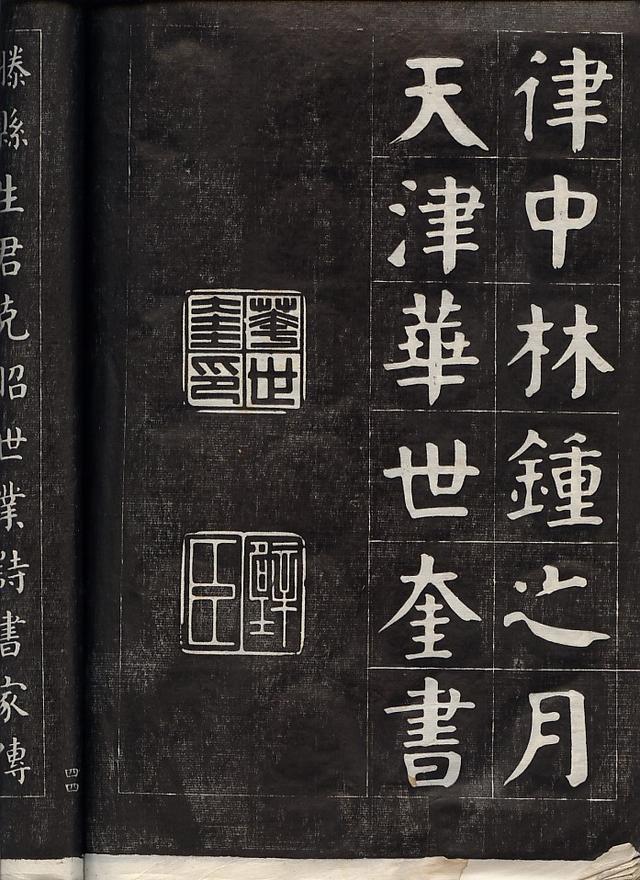 律中林鍾之月
天津華世奎書
華世奎印
璧臣
滕縣生君克昭世業詩書家傳
四四